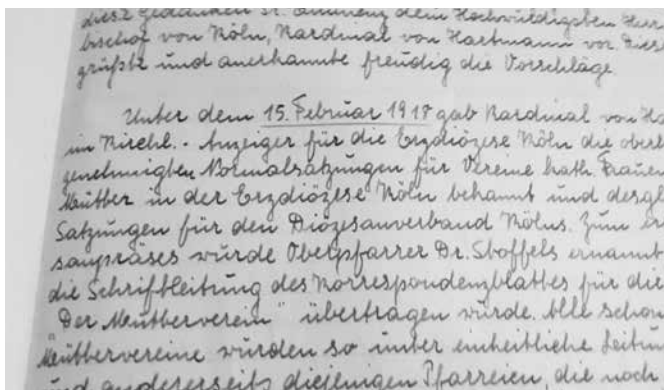 diese Gedanken Sr. Eminenz dem Hochwürdigsten Herrn
bischof von Köln, Kardinal von Hartmann vor. Dies
grüßte und anerkannte freudig die Vorschläge.
Unter dem 15. Februar 1917 gab Kardinal von Ha
im Kirchl. - Anzeiger für die Erzdiözese Köln die oberh
genehmigten Normalsatzungen für Vereine kath. Frauen
Mütter in der Erzdiözese Köln bekannt und desgl
Satzungen für den Diözesanverband Kölns. Zum er
sanpräses wurde Oberpfarrer Dr. Stoffels ernannt
die Schriftleitung des Korrespondenzblattes für die
Der Mütterverein" übertragen wurde. Alle schon
Müttervereine wurden so unter einheitliche Leitun
und andererseits diejenigen Pfarreien, die noch